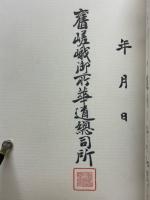 年月日
舊嵯峨御所華道總司所